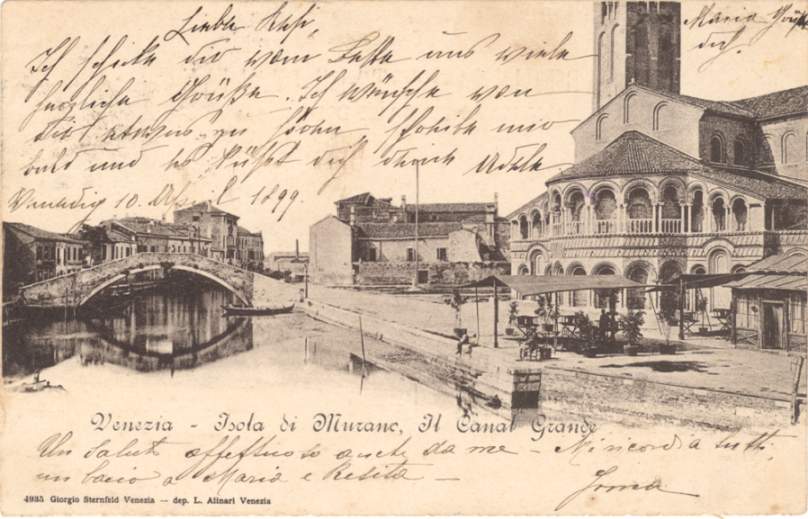 Liebe Resi,
Ich schicke dir vom Letta uns viele
herzliche Grüße. Ich wünsche von
dir etwas zu hören schreibe mir
bald und es küßt dich Adele
Maria Grüßt
dich.
Venedig 10. April 1899.
Venezia - Isola di Murano, Il Canal Grande
Un saluto affettuoso anche da me - Misicordia tutti,
un bacio a Maria e Resita -
Irma
4935 Giorgio Sternfeld Venezia — dep. L. Alinari Venezia